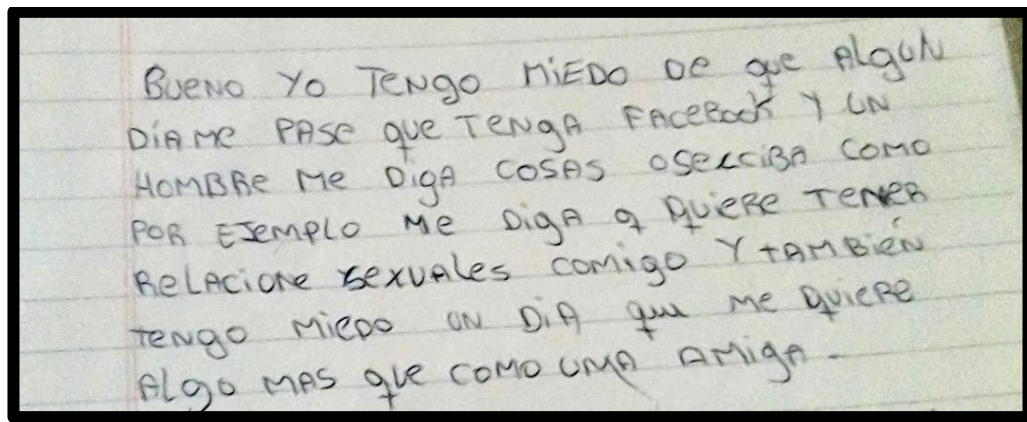 BUENO YO TENGO MIEDO DE que AlgUN
DÍA ME PASE que TENGA FACEBOOk Y UN
HOMBRE ME DigA COSAS O
COMO
POR EJEMPLO ME DigA q QUIERE TENER
RELACIONE SEXUALES COMIGO Y TAMBIÉN
TENgO MIEDO UN DIA que ME QUIERE
Algo MAS que COMO UMA AMIGA-